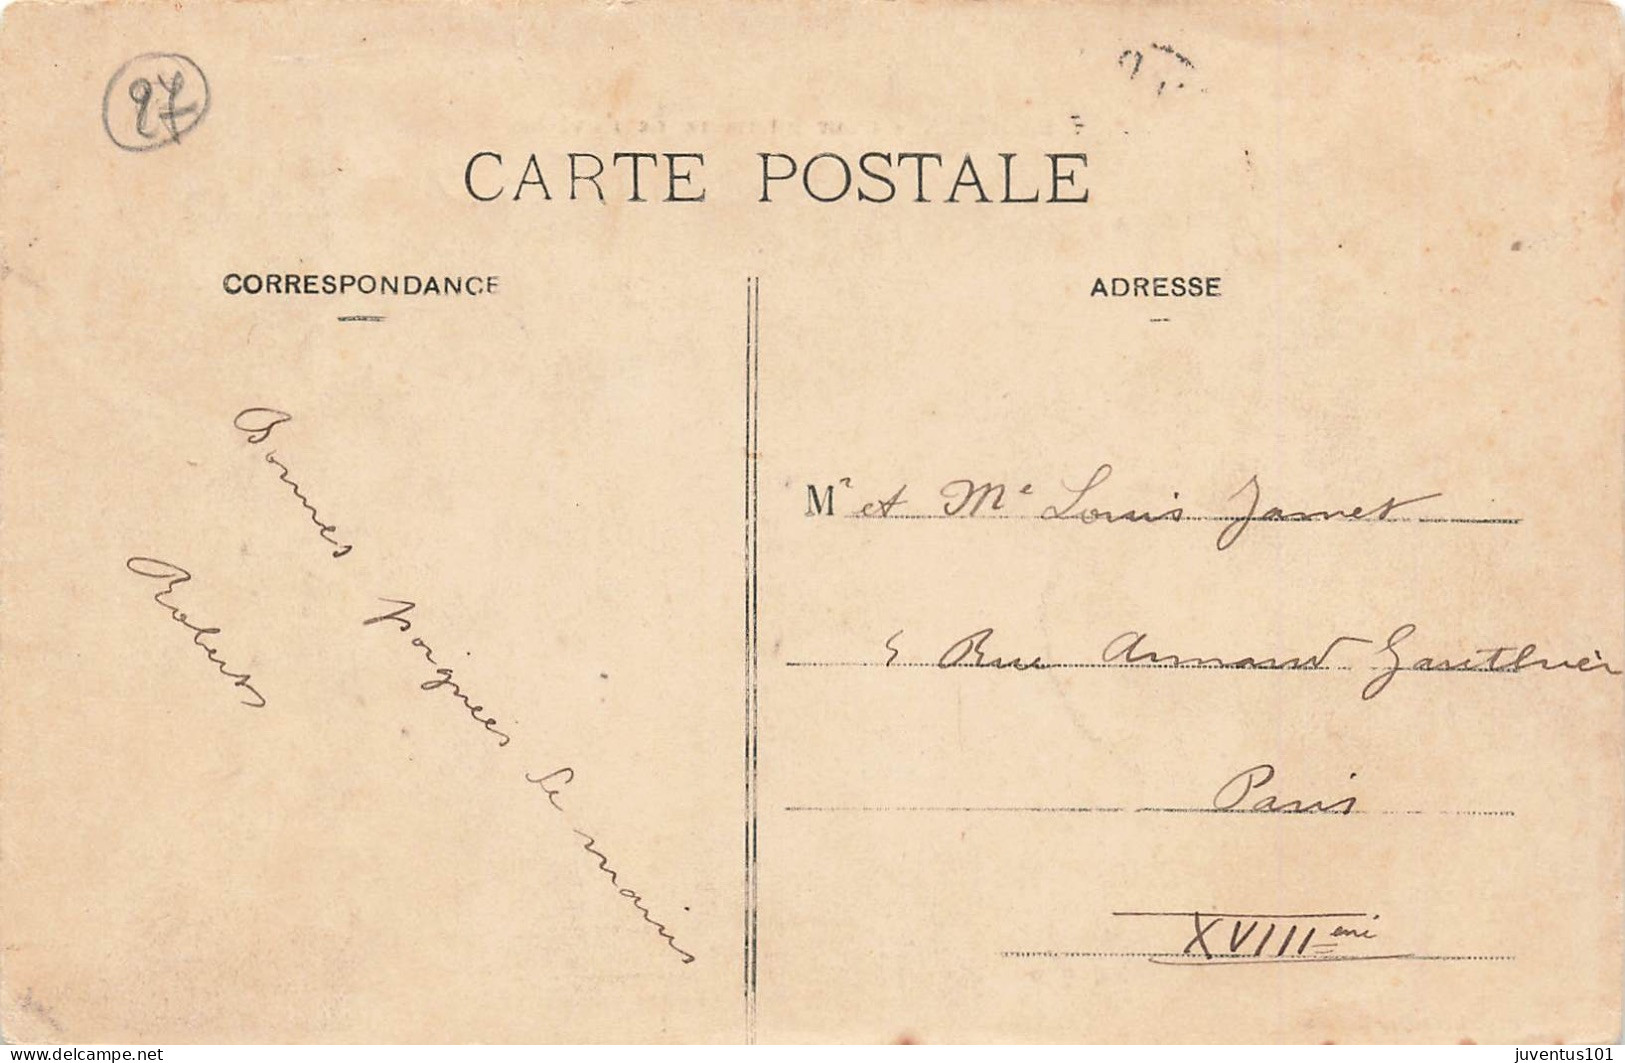 27
CARTE POSTALE
CORRESPONDANCE
ADRESSE
Bonnes poignées de mains
Robert
Mr et Me Louis Jamet
5 Rue Armand Gauthier
Paris
XVIIIème
www.delcampe.net
juventus101